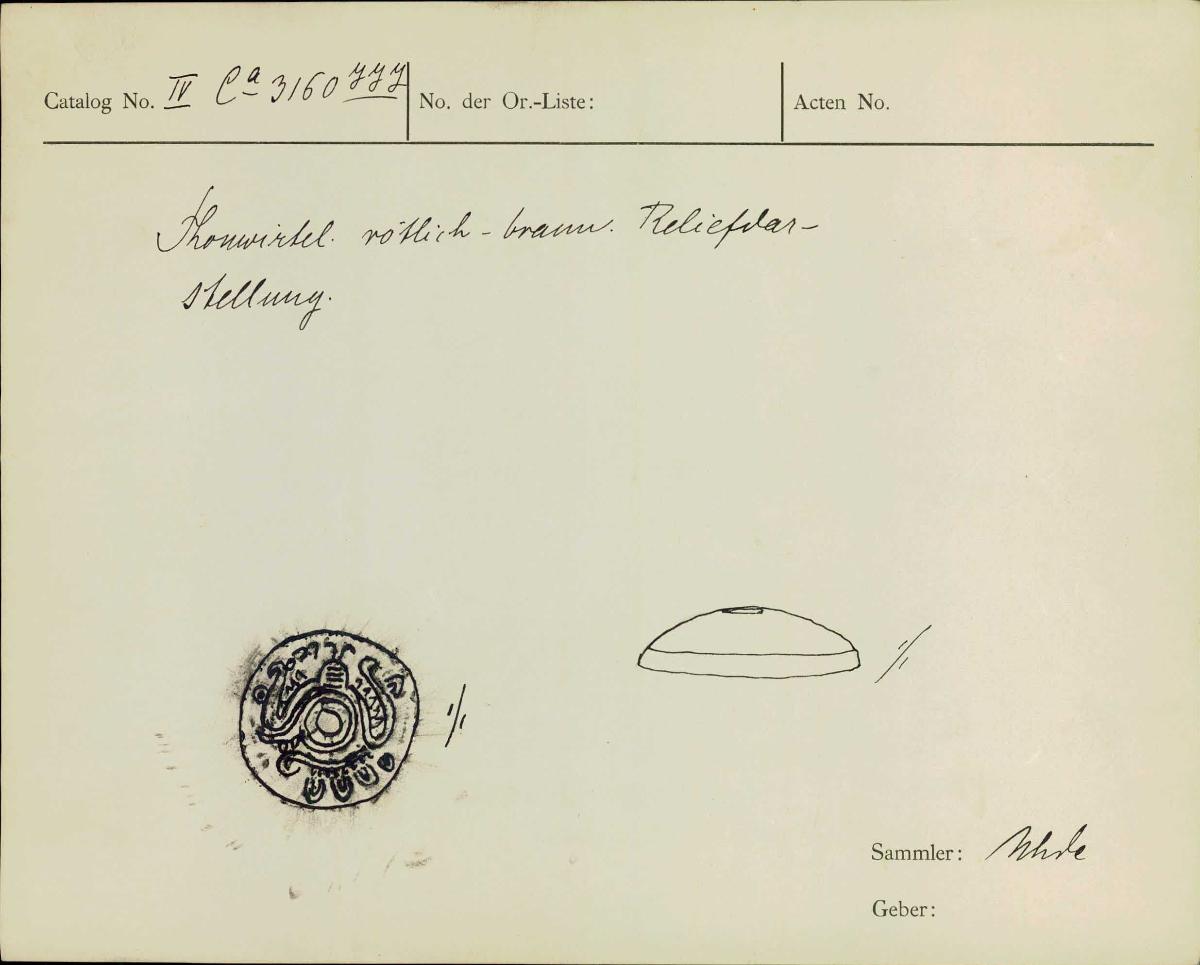 Catalog No. IV Ca 3160 yyy
No. der Or.-Liste:
Acten No.
Thonwirtel. rötlich-braun. Reliefdar-
stellung.
1/1
1/1
Sammler: Uhde
Geber: